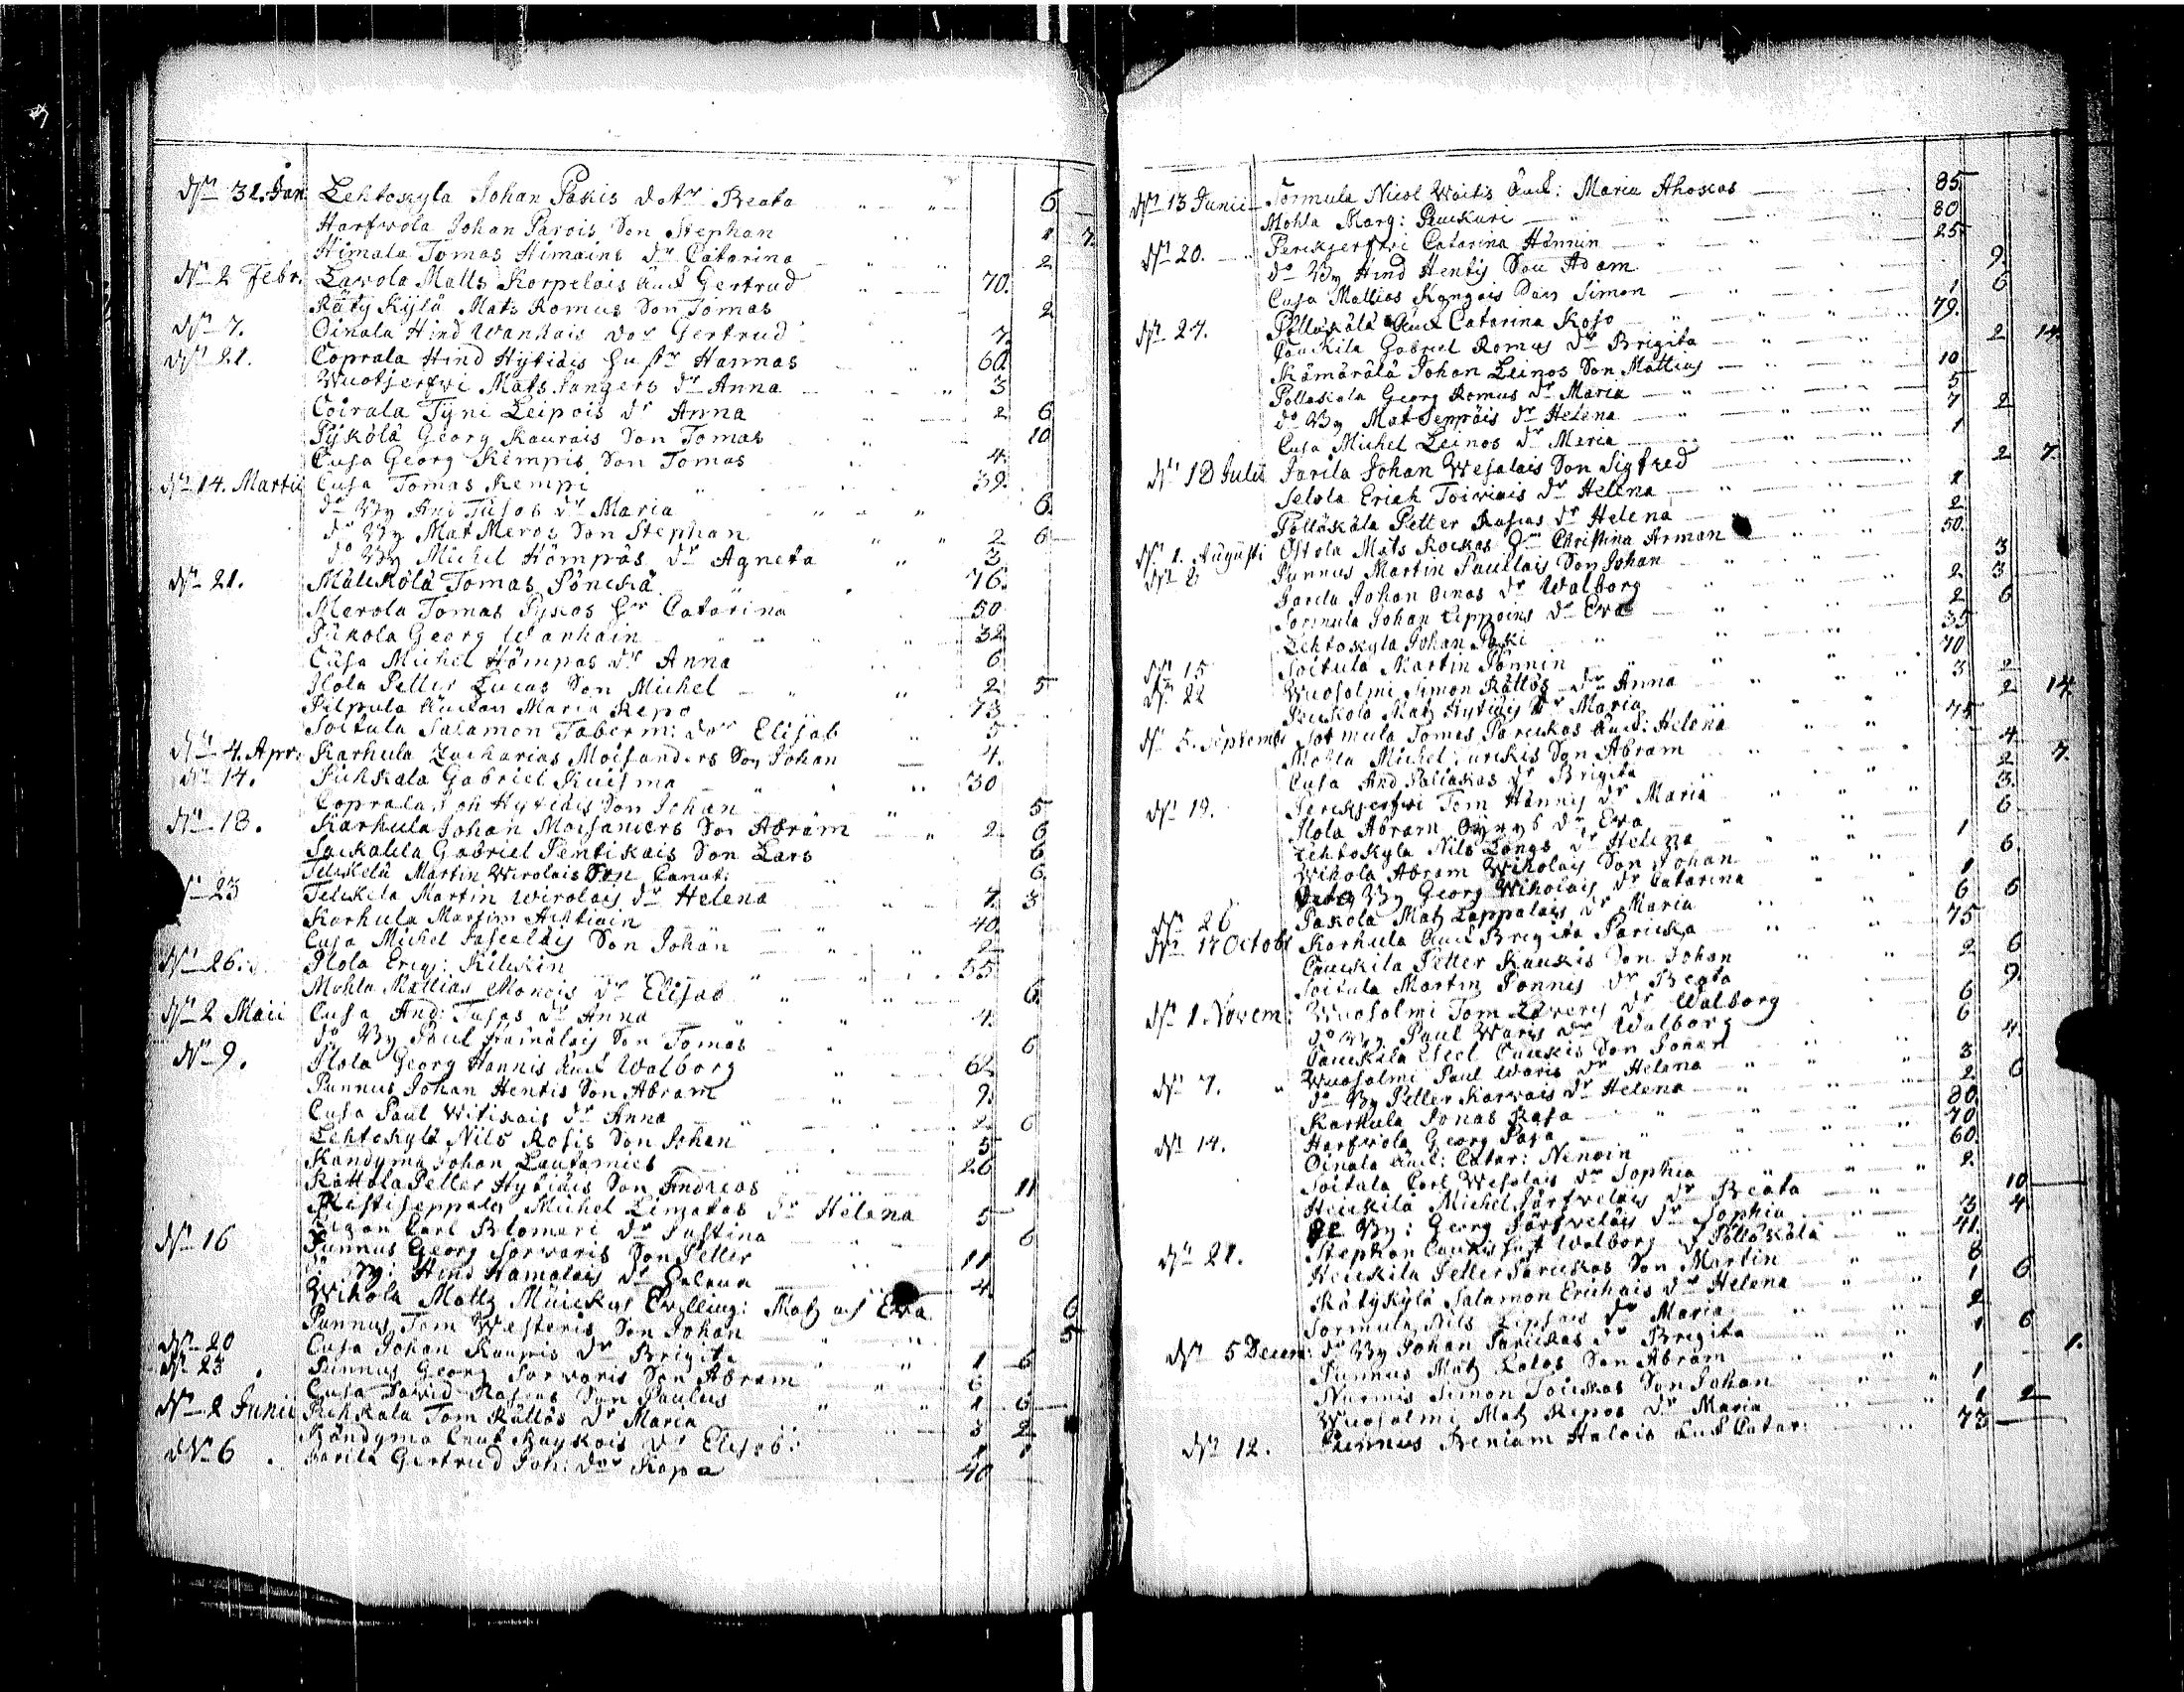 dN 31. Jan Lehtokyla Johan Pakis dotr Beata 6
Harfwola Johan Parois Son Stephan 1 7.
Himala Tomas Himains dr Catarina 2
dN 2 Febr. Lavola Matts Korpelais Änck Gertrud 70.
Räty Kylä Mats Romus Son Tomas 2
dN 7. Oinala Hind Wanhais dor Gertrud 7.
dN 21. Coprala Hind Hytiäis Hustr Hannas 60.
Wuotjerfwi Mats Jangers dr Anna 3
Coirala Tyni Leipois dr Anna 2 6
Pykölä Georg Kaurais Son Tomas 10
Cusa Georg Kempis Son Tomas 4.
dN 14. Martii Cusa Tomas Kempi 39.
do By And Tusos dr Maria 6.
do By Mat Meros Son Stephan 2 6
do By Michel Hömpäs dr Agneta 3
dN 21. Mälckölä Tomas Pönckä 76.
Merola Tomas Pykos Hr Catarina 50
Pukola Georg Wanhain 32
Cusa Michel Hömpas dr Anna 6
Ilola Petter Lucas Son Michel 2 5
Pilpula Änckan Maria Repo 73
Soitula Salamon Taberm: dor Elisab 5
dN 4. Apr. Karhula Zacharias Moisanders Son Johan 4.
dN 14. Puhkala Gabriel Kuisma 30
Coprala Joh Hytiäis Son Johan 5
dN 18. Karhula Johan Moisanders Son Abram 2 6
Gabriel Pentikais Son Lars 6
Martin Wirolais Son Canut: 6
dN 23 Martin Wirolais dr Helena 7 3
Karhula Martin 40.
Cusa Michel Son Johan 2
dN 26. Ilola Erig: Kilckin 55
Mohla Mattias Monois dr Elisab 6
dN 2 Maii Cusa And: Tusas dr Anna 4.
do By Paul Hämäläis Son Tomas 6
dN 9. Ilola Georg Hannis Änck Walborg 62
Punnus Johan Hentis Son Abram 9.
Cusa Paul Witikais dr Anna 2 6
Lehtokylä Nils Rosis Son Johan 5
Kandyma Johan Lautamies 26
Kottola Petter Hytiäis Son Andreas 11
Ristiseppala Michel Limatas dr Helena 5
Carl Blomeri dr Justina 6
dN 16 Punnus Georg Sorvaris Son Petter 11
do By: Hind Hämäläis dr Helena 4
Wihola Matts Mäickys Twilling: Mats och Eva 6
Punnus Tom Westeris Son Johan 5
dN 20 Cusa Johan Kaupis dr Brigita 1 6
dN 23 Punnus Georg Sorvaris Son Abram 6
Cusa David Rasias Son Paulus 1 6
dN 2 Junii Puhkala Tom Rättös dr Maria 3 2
Kändyma Cnut Kaykois dr Elisab: 1 1
dN 6 Parila Gertrud Joh: dor Kopa 40
dN 13 Junii Sormula Nicol Waitis Änck: Maria Ahokas 85
Mohla Marg: Pauckuri 80
dN 20. Perckjerfwi Catarina Hännin 25
do By Hind Hentis Son Adam 9.
Cusa Mattias Kangais Son Simon 1 6
dN 27. Pölläkälä Änck Catarina Koso 79.
Cauckila Gabriel Romus dr Brigita 2 14.
Kämärälä Johan Leinos Son Mattias 10
Pölläkälä Georg Romus dr Maria 5
do By Mat Seppäis dr Helena 7 2
Cusa Michel Leinos dr Maria 1
dN 18 Julii Parila Johan Wesalais Son Sigfred 2 7.
Selola Erich Toiviais dr Helena 1
Pölläkälä Petter Rasias dr Helena 2
dN 1. Augusti Ostola Mats Kockas Hr Christina Arman 50.
dN 8 Punnus Martin Paullais Son Johan 3
Parila Johan Ainas dr Walborg 2 3
Sormula Johan Lippoins dr Eva 2 6
Lehtokyla Johan Paski 35
dN 15 Soitula Martin Pönnin 70
dN 22 Wuosalmi Simon Rättös dr Anna 3 2
Pauckola Mats Hytiäis dr Maria 2 14.
dN 5. Septembr Sormula Tomas Parckas Änck: Helena 75
Mohla Michel Turckis Son Abram 4
Cusa And Paliakas dr Brigita 2 7.
dN 19. Perckjerfwi Tom Hännis dr Maria 3.
Ilola Abram dr Eva 6
Lehtokyla Nils Längs dr Helena 1
Wihola Abram Wiholais Son Johan 6.
Dito By Georg Wiholais dr Catarina 1
dN 26 Pakola Mats Lappalais dr Maria 6 6
dN 17 Octobr Karhula Änck Brigita Paricka 75
Cauckila Petter Kauckis Son Johan 2 6
Soitula Martin Pönnis dr Beata 9.
dN 1 Novem: Wuosalmi Tom Laveris dr Walborg 6
do By Paul Waris dr Walborg 6
Cauckila Son Johan 4
dN 7. Wuosalmi Paul Waris dr Helena 3
do By Petter Karvais dr Helena 2 6
Karhula Jonas Rasa 80.
dN 14. Harfwola Georg Pasa 70
Oinala Änck: Catar: Nenoin 60
Soitula Carl Wesolais dr Sophia 2.
Heickilä Michel Parfwelais dr Beata 10
do By: Georg Parfwelais dr Sophia 3 4
dN 21. Stephan Cauckis hust Walborg i Pölläkälä 41.
Heickila Petter Parickas Son Martin 8
Rätykylä Salamon Erichais dr Helena 1 6
Sormula Nils Lipsais dr Maria 2
dN 5 Decem: do By Johan Parickas dr Brigita 1 6
Punnus Mats Lalos Son Abram 1.
Nurmis Simon Toickas Son Johan 1
Wuosalmi Mats Repos dr Maria 1 2
dN 12. Punnus Beniam Halois Änck Catar: 73